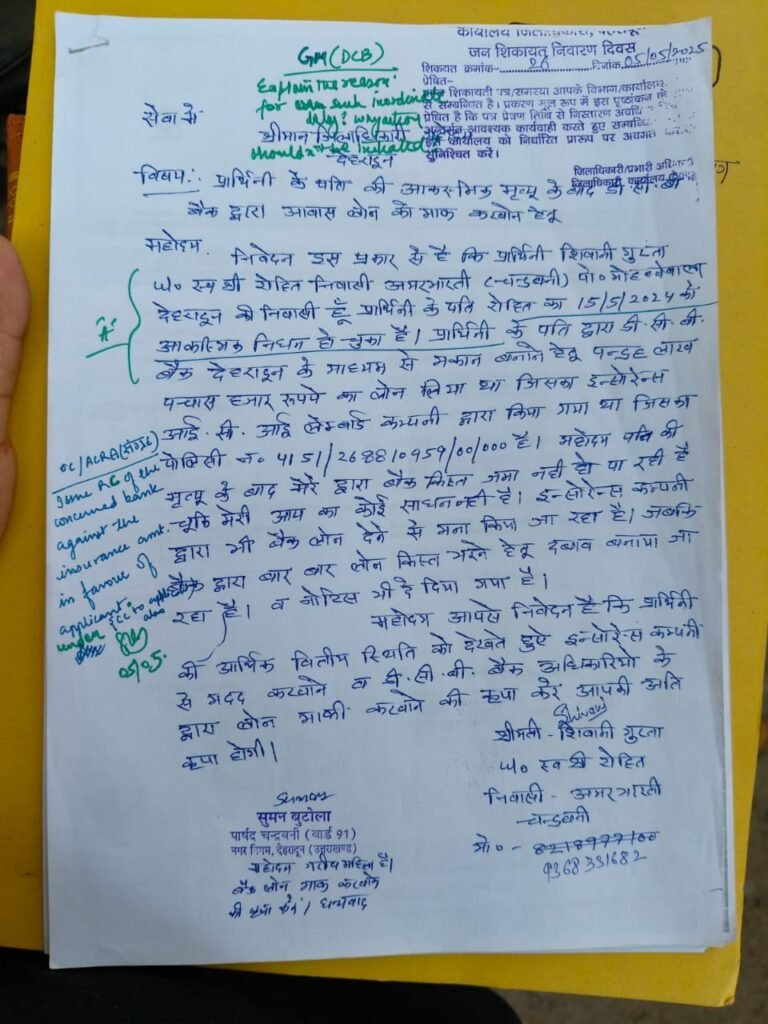 जन शिकायत निवारण दिवस
शिकायत क्रमांक- 26 दिनांक 05/05/2025
प्रेषित-
शिकायती पत्र/समस्या आपके विभाग/कार्यालय
से सम्बन्धित है। प्रकरण मूल रूप में इस पृष्ठांकन के
प्रेषित है कि पत्र प्रेषण तिथि से निस्तारण अवधि
आवश्यक कार्यवाही करते हुए
कार्यालय को निर्धारित प्रारूप पर अवगत
सुनिश्चित करें।
जिलाधिकारी/प्रभारी
जिलाधिकारी कार्यालय
GM (DCB)
Explain the reason
for such inordinate
delay? why action
shouldn't be initiated
सेवा में
श्रीमान जिलाधिकारी
देहरादून
विषय:- प्रार्थिनी के पति की आकस्मिक मृत्यू के बाद डी सी बी
बैंक द्वारा आवास लोन को माफ करवाने हेतू
महोदय, निवेदन इस प्रकार से है कि प्रार्थिनी शिवानी गुप्ता
w/o स्व श्री रोहित निवासी अमरभारती (चन्द्रबनी) पो०
देहरादून की निवासी हूँ प्रार्थिनी के पति रोहित का 15/5/2024 को
आकस्मिक निधन हो चुका है। प्रार्थिनी के पति द्वारा डी. सी. बी.
बैंक देहरादून के माध्यम से मकान बनाने हेतू पन्द्रह लाख
पच्चास हजार रूपये का लोन लिया था जिसका इन्सोरेन्स
आई. सी. आई लेम्बार्ड कम्पनी द्वारा किया गया था जिसका
पोलिसी न० 4151/268810959/00/000 है। महोदय पति की
मृत्यू के बाद मेरे द्वारा बैंक किस्त जमा नही हो पा रही है
चूकि मेरी आय का कोई साधन नही है। इन्सोरेन्स कम्पनी
द्वारा भी बैंक लोन देने से मना किया जा रहा है। जबकि
बैंक द्वारा बार बार लोन किस्त भरने हेतू दबाव बनाया जा
रहा है। व नोटिस भी दे दिया गया है।
महोदय आपसे निवेदन है कि प्रार्थिनी
की आर्थिक वित्तीय स्थिति को देखते हुए इन्सोरेन्स कम्पनी
से मदद करवाने व डी. सी. बी. बैंक अधिकारियो के
द्वारा लोन माफी करवाने की कृपा करें आपकी अति
कृपा होगी।
"A"
OC/ACRA
Issue RC of the
concerned bank
against the
insurance amt.
in favour of
applicant
05/05.
Shivani
श्रीमती - शिवानी गुप्ता
w/o स्व श्री रोहित
निवासी - अमरभारती
चन्द्रबनी
मो० - 8218977100
9368331682
Suman
सुमन बुटोला
पार्षद चन्द्रबनी (वार्ड 91)
नगर निगम, देहरादून (उत्तराखण्ड)
महोदय गरीब महिला है।
बैंक लोन माफ करवाने
की कृपा करें। धन्यवाद